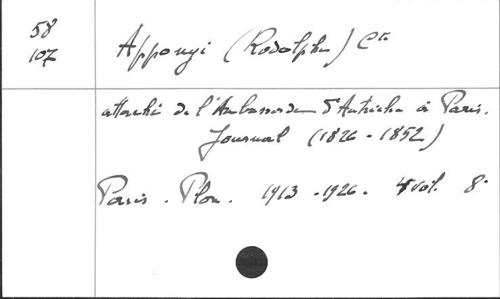 58
107
Apponyi (Rodolphe) Cte
attaché de l'Ambassade d'Autriche à Paris.
Journal (1826 - 1852)
Paris. Plon. 1913 - 1926. 4 vol. 8°